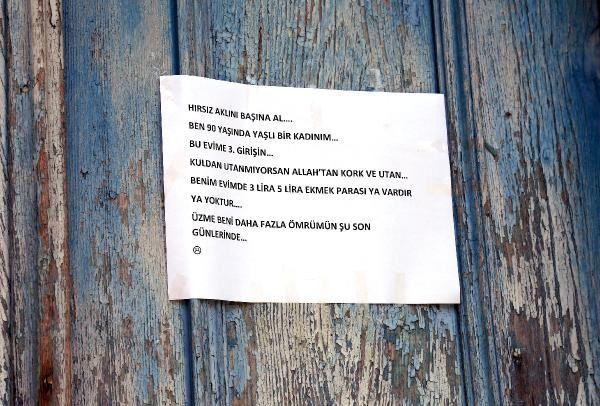 HIRSIZ AKLINI BAŞINA AL....
BEN 90 YAŞINDA YAŞLI BİR KADINIM...
BU EVİME 3. GİRİŞİN...
KULDAN UTANMIYORSAN ALLAH'TAN KORK VE UTAN...
BENİM EVİMDE 3 LİRA 5 LİRA EKMEK PARASI YA VARDIR
YA YOKTUR....
ÜZME BENİ DAHA FAZLA ÖMRÜMÜN ŞU SON
GÜNLERİNDE...
☹